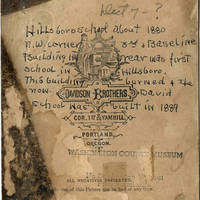 Hillsboro school about 1880
N.W. corner 3rd & Baseline
Building in rear was first
school in Hillsboro.
This building burned & the
now David
school was built in 1889
DAVIDSON BROTHERS
COR. 1st & YAMHILL
PORTLAND,
OREGON.
WASHINGTON COUNTY MUSEUM
ALL NEGATIVES PRESERVED.
of this Picture can be had at any time.